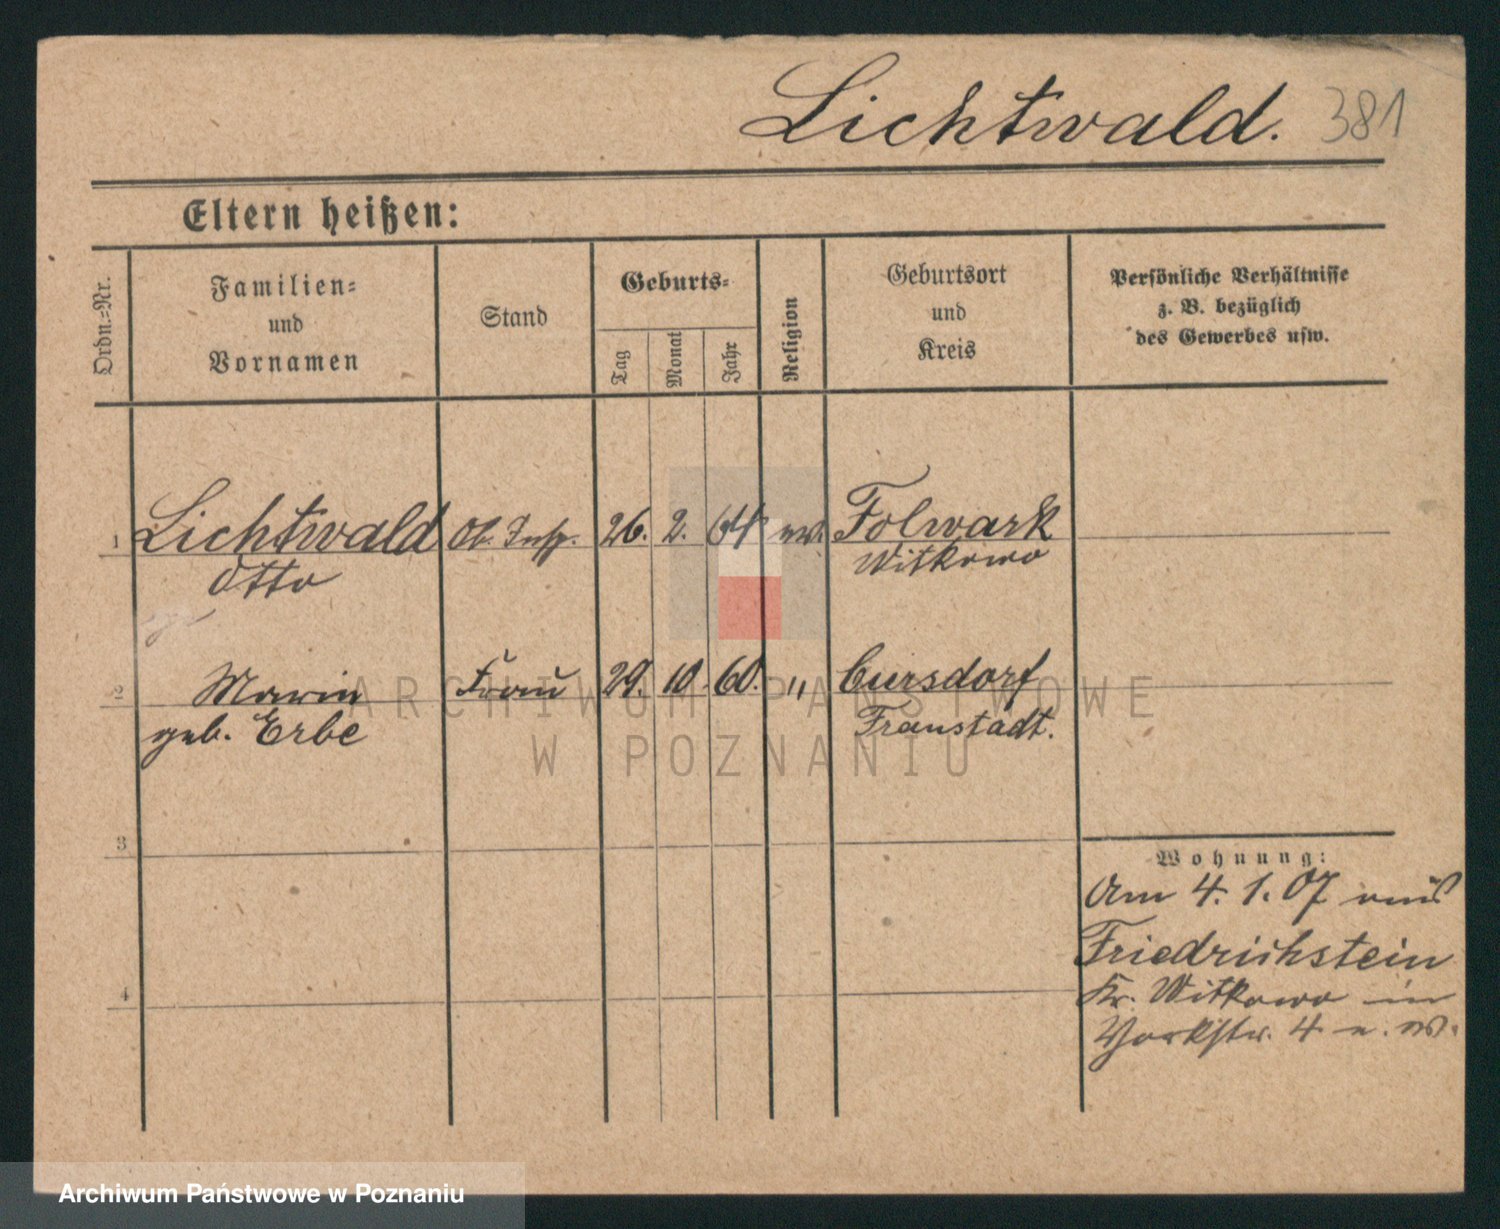 Lichtwald. 381
Eltern heißen:
Ordn.=Nr.
Familien=
und
Vornamen
Stand
Geburts=
Tag
Monat
Jahr
Religion
Geburtsort
und
Kreis
Persönliche Verhältnisse
z. B. bezüglich
des Gewerbes usw.
1 Lichtwald Ob. Insp. 26. 2. 64 ev. Folwark
Otto Witkowo
2 Maria Frau 29. 10. 60. " Cursdorf
geb. Erbe Fraustadt.
3
Wohnung:
Am 4. 1. 07 aus
Friedrichstein
4
Kr. Witkowo in
Yorkstr. 4
ARCHIWUM PAŃSTWOWE
W POZNANIU
Archiwum Państwowe w Poznaniu